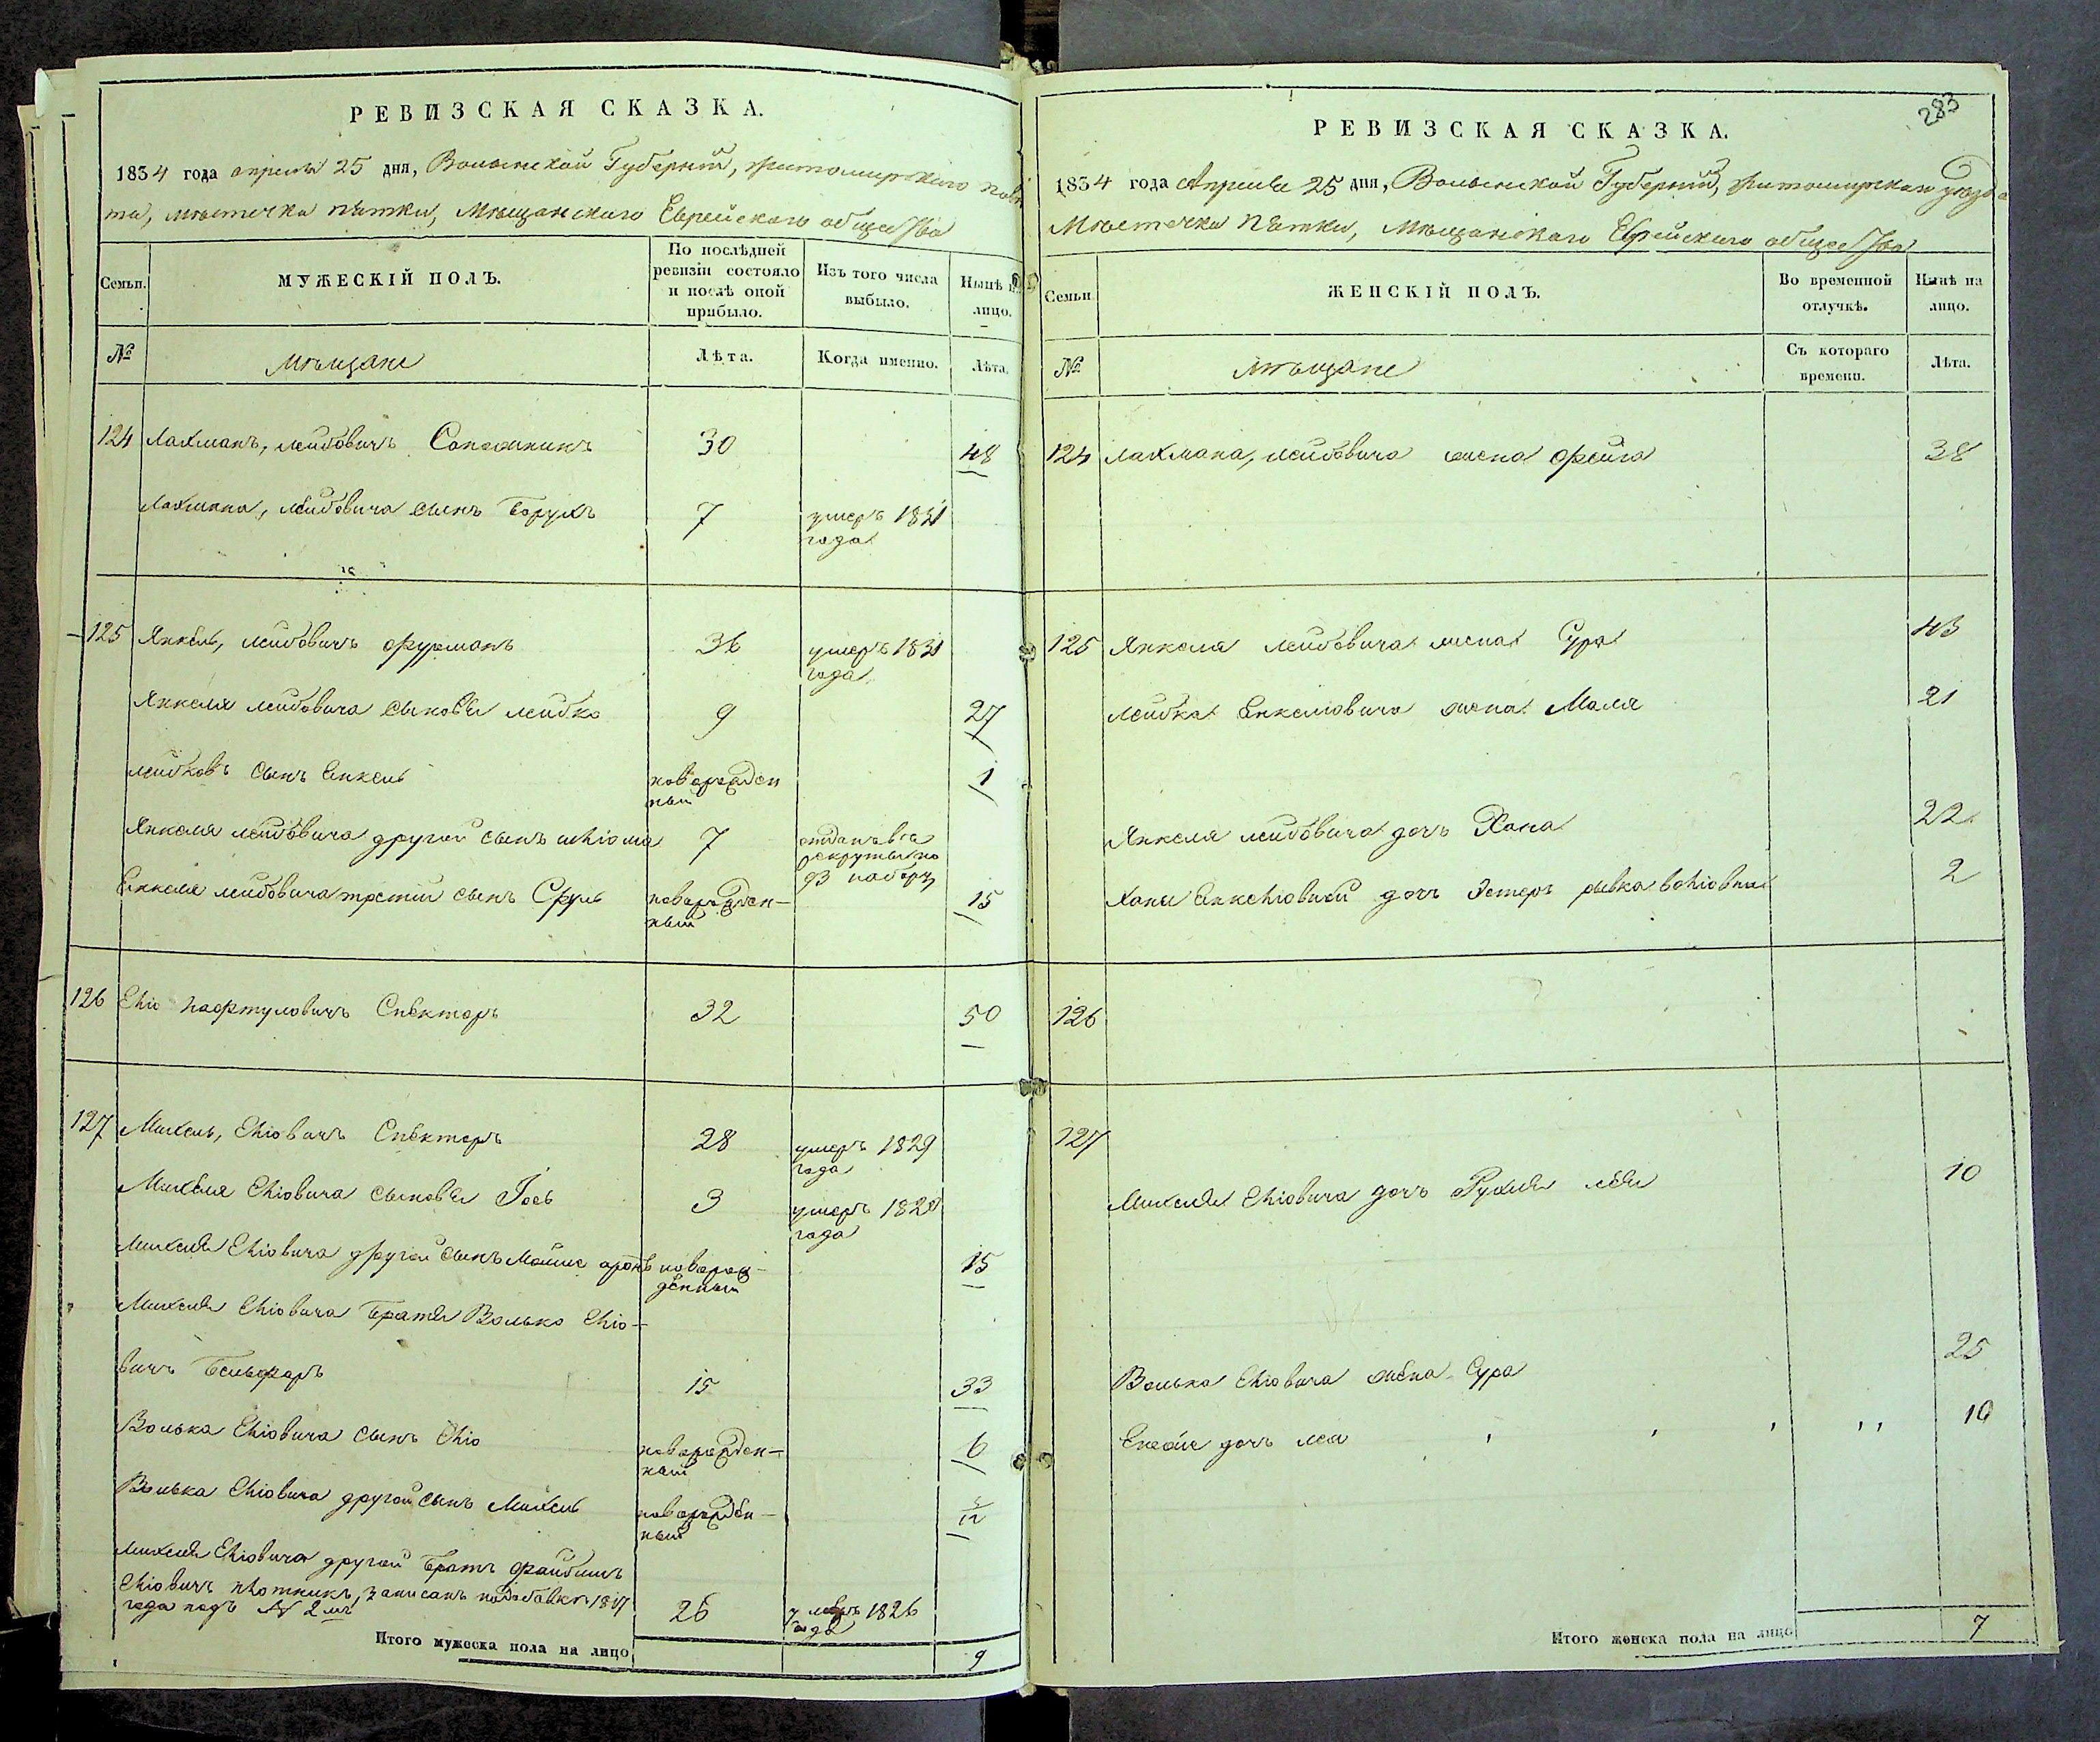 РЕВИЗСКАЯ СКАЗКА.
1834 года апреля 25 дня, Волынской Губерніи, житомирского пове
та, мѣстечка пѣтки, Мѣщанского Еврейского общества
Семьи.
МУЖЕСКІЙ ПОЛЪ.
По послѣдней
ревизіи состояло
и послѣ оной
прибыло.
Изъ того числа
выбыло.
Нынѣ на
лицо.
№
мѣщане
Лѣта.
Когда именно.
Лѣта.
124 Лахманъ, лейбовичъ Сапожникъ 30 48
Лахмана, лейбовича сынъ Борухъ 7 умеръ 1831
года
125 Янкель, лейбовичъ фурманъ 36 умеръ 1831
года
Янкеля лейбовича сыновья лейбко 9 27
лейбковъ сынъ Енкель новорожден 1
ный
Янкеля лейбовича другой сынъ 7 отданъ въ
рекруты по
93 набору
Енкеля лейбовича третий сынъ Сруль новорожден- 15
ный
126 Ehio нафтуловичъ Спекторъ 32 50
127 Михель, Ehioвичъ Спекторъ 28 умеръ 1829
года
Михеля Ehioвича сыновья Іось 3 умеръ 1828
года
Михеля Ehioвича другой сынъ Мошке аронъ новорож- 15
денный
Михеля Ehioвича братья Волько Ehio-
вичъ Бельферъ 15 33
Волька Ehioвича сынъ Ehio новорожден- 6
ный
Волька Ehioвича другой сынъ Михель новорожден-
ный
михеля Ehioвича другой братъ файбишъ
Ehioвичъ плотникъ, записанъ по добавке 1817
года подъ N 2мъ 26 умеръ 1826
года
Итого мужеска пола на лицо 9
283
РЕВИЗСКАЯ СКАЗКА.
1834 года Апреля 25 дня, Волынской Губерніи, житомирскаго уезда
Мѣстечка пѣтки, мѣщанскаго Еврейскаго общества
Семьи
ЖЕНСКІЙ ПОЛЪ.
Во временной
отлучкѣ.
Нынѣ на
лицо.
№
мѣщане
Съ котораго
времени.
Лѣта.
124 лахмана, лейбовича жена фейга 38
125 Янкеля лейбовича жена Сура 43
лейбка Енкелювича жена Маля 21
Янкеля лейбовича дочь Хана 22
Ханы дочь Эстеръ 2
126
127
Михеля Ehioвича дочь Рухля лея 10
Волька Ehioвича жена Сура 25
дочь лея 10
Итого женска пола на лицо 7